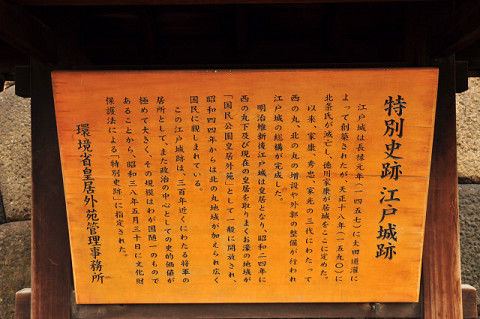 特別史跡 江戸城跡
江戸城は長禄元年(一四五七)に太田道灌に
よって創築されたが、天正十八年(一五九〇)に
北条氏が滅亡し、徳川家康が居城をここに定めた。
以来、家康、秀忠、家光の三代にわたって
西の丸、北の丸の増設や外郭の整備が行われ
江戸城の総構が完成した。
明治維新後江戸城は皇居となり、昭和二四年に
西の丸下及び現在の皇居を取りまくお濠の地域が
「国民公園皇居外苑」として一般に開放され、
昭和四四年からは北の丸地域が加えられ広く
国民に親しまれている。
この江戸城跡は、三百年近くにわたる将軍の
居所としてまた政治の中心としての史的価値が
極めて大きく、その規模はわが国随一のもので
あることから、昭和三八年五月三十日に文化財
保護法による「特別史跡」に指定された。
環境省皇居外苑管理事務所